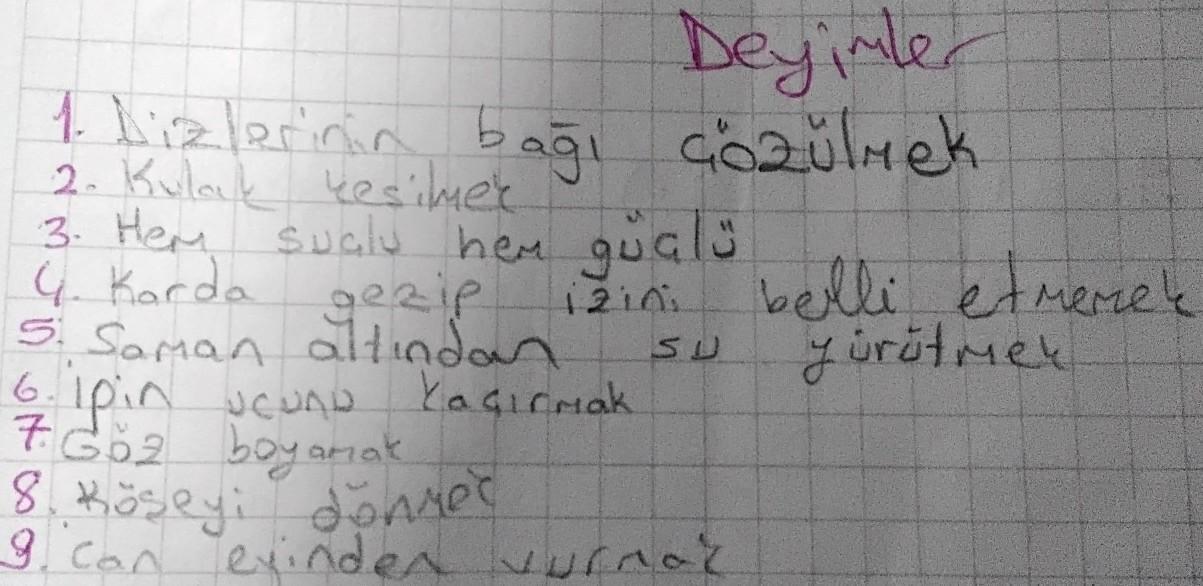 Deyimler
1. Dizlerinin bağı çözülmek
2. Kulak kesilmek
3. Hem suçlu hem güçlü
4. Karda gezip izini belli etmemek
5. Saman altından su yürütmek
6. İpin ucunu kaçırmak
7. Göz boyamak
8. Köşeyi dönmek
9. Can evinden vurmak